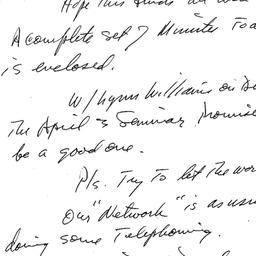 Hope this finds all
A complete set of Minutes
is enclosed.
W/Lynn Williams on
The April 3 Seminar promise
be a good one.
Pls. Try To let the wor
Our "Network" is as usu
doing some Telephoning.